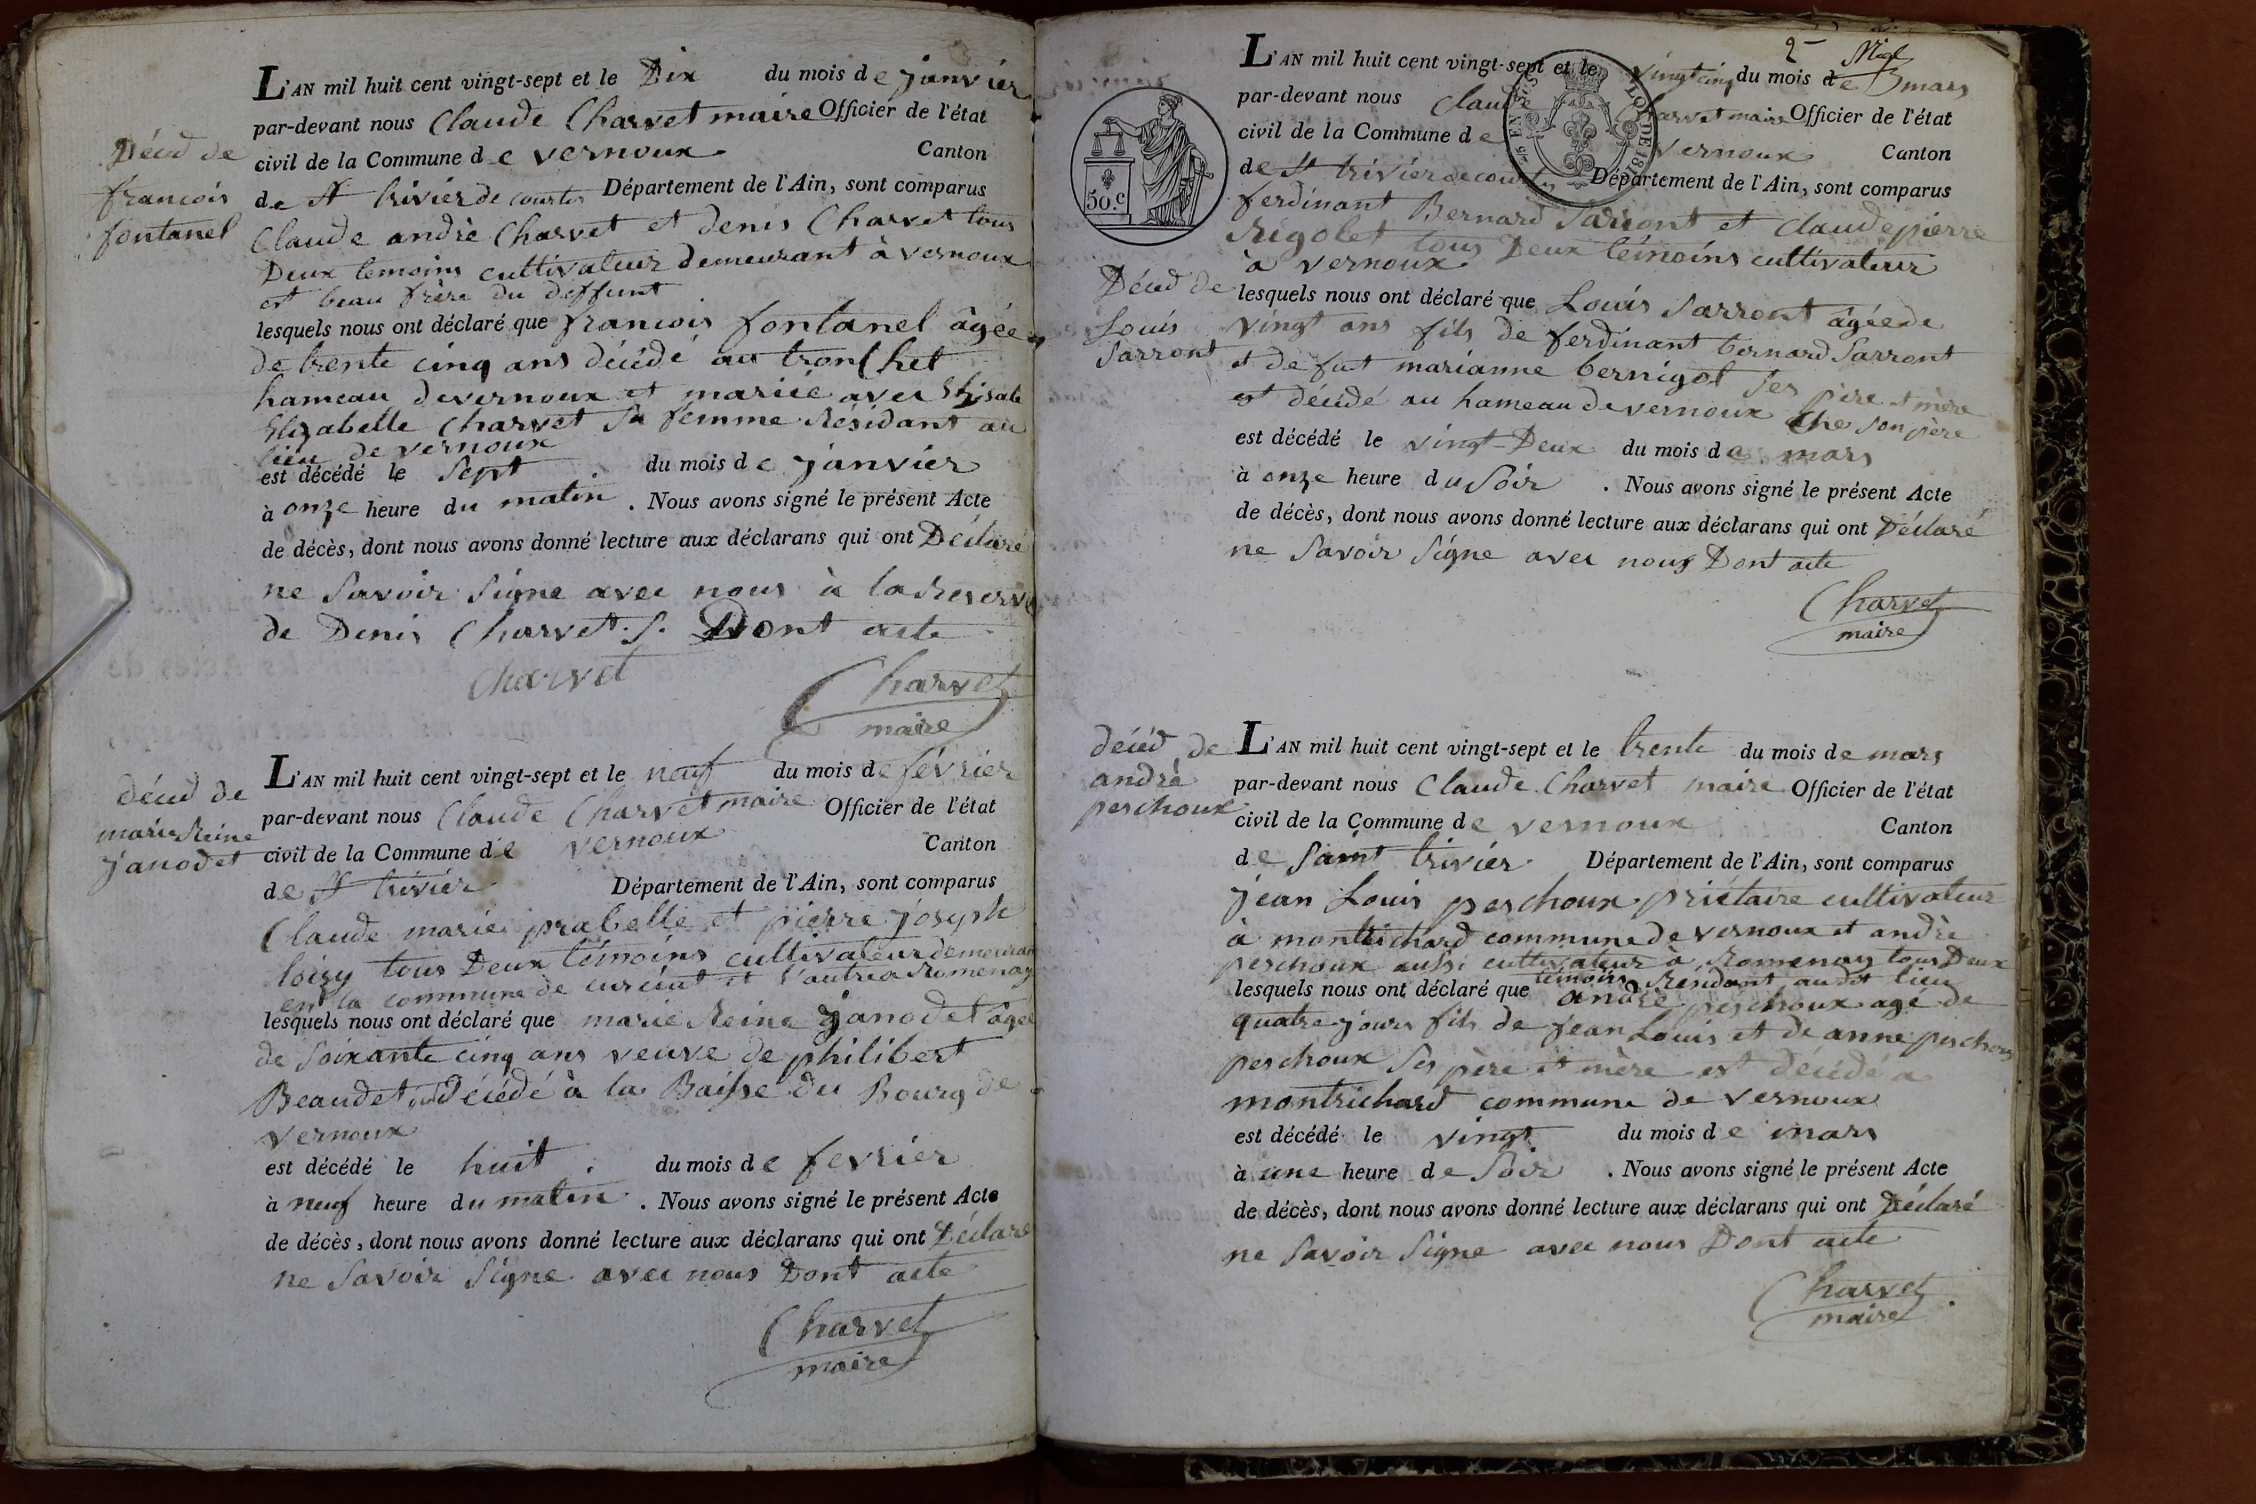 L'AN mil huit cent vingt-sept et le Dix du mois de janvier
par-devant nous Claude Charvet maire Officier de l'état
civil de la Commune de vernoux Canton
de St trivier de courtes Département de l'Ain, sont comparus
Claude andrè Charvet et denis Charvet tous
Deux temoins cultivateur demeurant à vernoux
est beau frère du deffunt
lesquels nous ont déclaré que francois fontanel âgée
de trente cinq ans décédé au tronchet
hameau de vernoux et mariié avec
Elizabelle Charvet Sa femme Résidant au
lieu de vernoux
est décédé le Sept du mois de janvier
à onze heure du matin . Nous avons signé le présent Acte
de décès, dont nous avons donné lecture aux déclarans qui ont Déclaré
ne Savoir Signe avec nous à la Reserve
de Denis Charvet. S. Dont acte
Charvet
Charvet
maire
Décéd de
francois
fontanel
L'AN mil huit cent vingt-sept et le neuf du mois de février
par-devant nous Claude Charvet maire Officier de l'état
civil de la Commune de vernoux Canton
de St trivier Département de l'Ain, sont comparus
Claude marie prabelle et pierre joseph
loisy tous Deux témoins cultivateur demeurant
en la commune de curciat et l'autre a Romenay
lesquels nous ont déclaré que marie Reine janodet âgée
de Soixante cinq ans veuve de philibert
Beaudet Décédé à la Baisse du Bourg de
vernoux
est décédé le huit . du mois de fevrier
à neuf heure du matin . Nous avons signé le présent Acte
de décès, dont nous avons donné lecture aux déclarans qui ont Déclaré
ne Savoir Signe avec nous Dont acte
Charvet
maire
décéd de
marie Reine
janodet
2
L'AN mil huit cent vingt-sept et le vingt cinq du mois de mars
par-devant nous Claude Charvet maire Officier de l'état
civil de la Commune de vernoux Canton
de St trivier de courtes Département de l'Ain, sont comparus
ferdinant Bernard Sarront et Claude pierre
Rigolet tous Deux témoins cultivateur
à vernoux
lesquels nous ont déclaré que Louis Sarront âgée de
vingt ans fils de ferdinant bernard Sarront
et de fut marianne bernigol Ses père et mère
est décédé au hameau de vernoux Che son père
est décédé le vingt-Deux du mois de mars
à onze heure du Soir . Nous avons signé le présent Acte
de décès, dont nous avons donné lecture aux déclarans qui ont Déclaré
ne Savoir Signe avec nous Dont acte
Charvet
maire
50.c
LOI DE 1816
Décéd de
Louis
Sarront
L'AN mil huit cent vingt-sept et le trente du mois de mars
par-devant nous Claude Charvet maire Officier de l'état
civil de la Commune de vernoux Canton
de Saint trivier Département de l'Ain, sont comparus
jean Louis peschoux priétaire cultivateur
à montrichard commune de vernoux et andrè
peschoux aussi cultivateur à Romenay tous Deux
témoins Résidant audit lieu
lesquels nous ont déclaré que andré peschoux agé de
quatre jours fils de jean Louis et de anne peschoux
peschoux Ses père et mère est décédé a
montrichard commune de vernoux
est décédé le vingt du mois de mars
à une heure de Soir . Nous avons signé le présent Acte
de décès, dont nous avons donné lecture aux déclarans qui ont Déclaré
ne Savoir Signe avec nous Dont acte
Charvet
maire
décéd de
andrè
peschoux